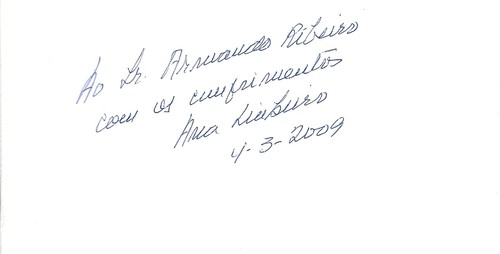 Ao Dr. Armando Ribeiro
com os cumprimentos
Ana
4-3-2009